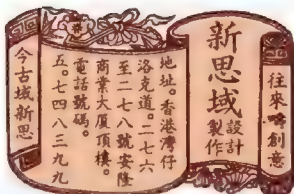 往來創意
新思域
設計
製作
地址。香港灣仔
洛克道。二七六
至二七八號安隆
商業大厦頂樓。
電話號碼。
五。七四八三九九
今古域新思